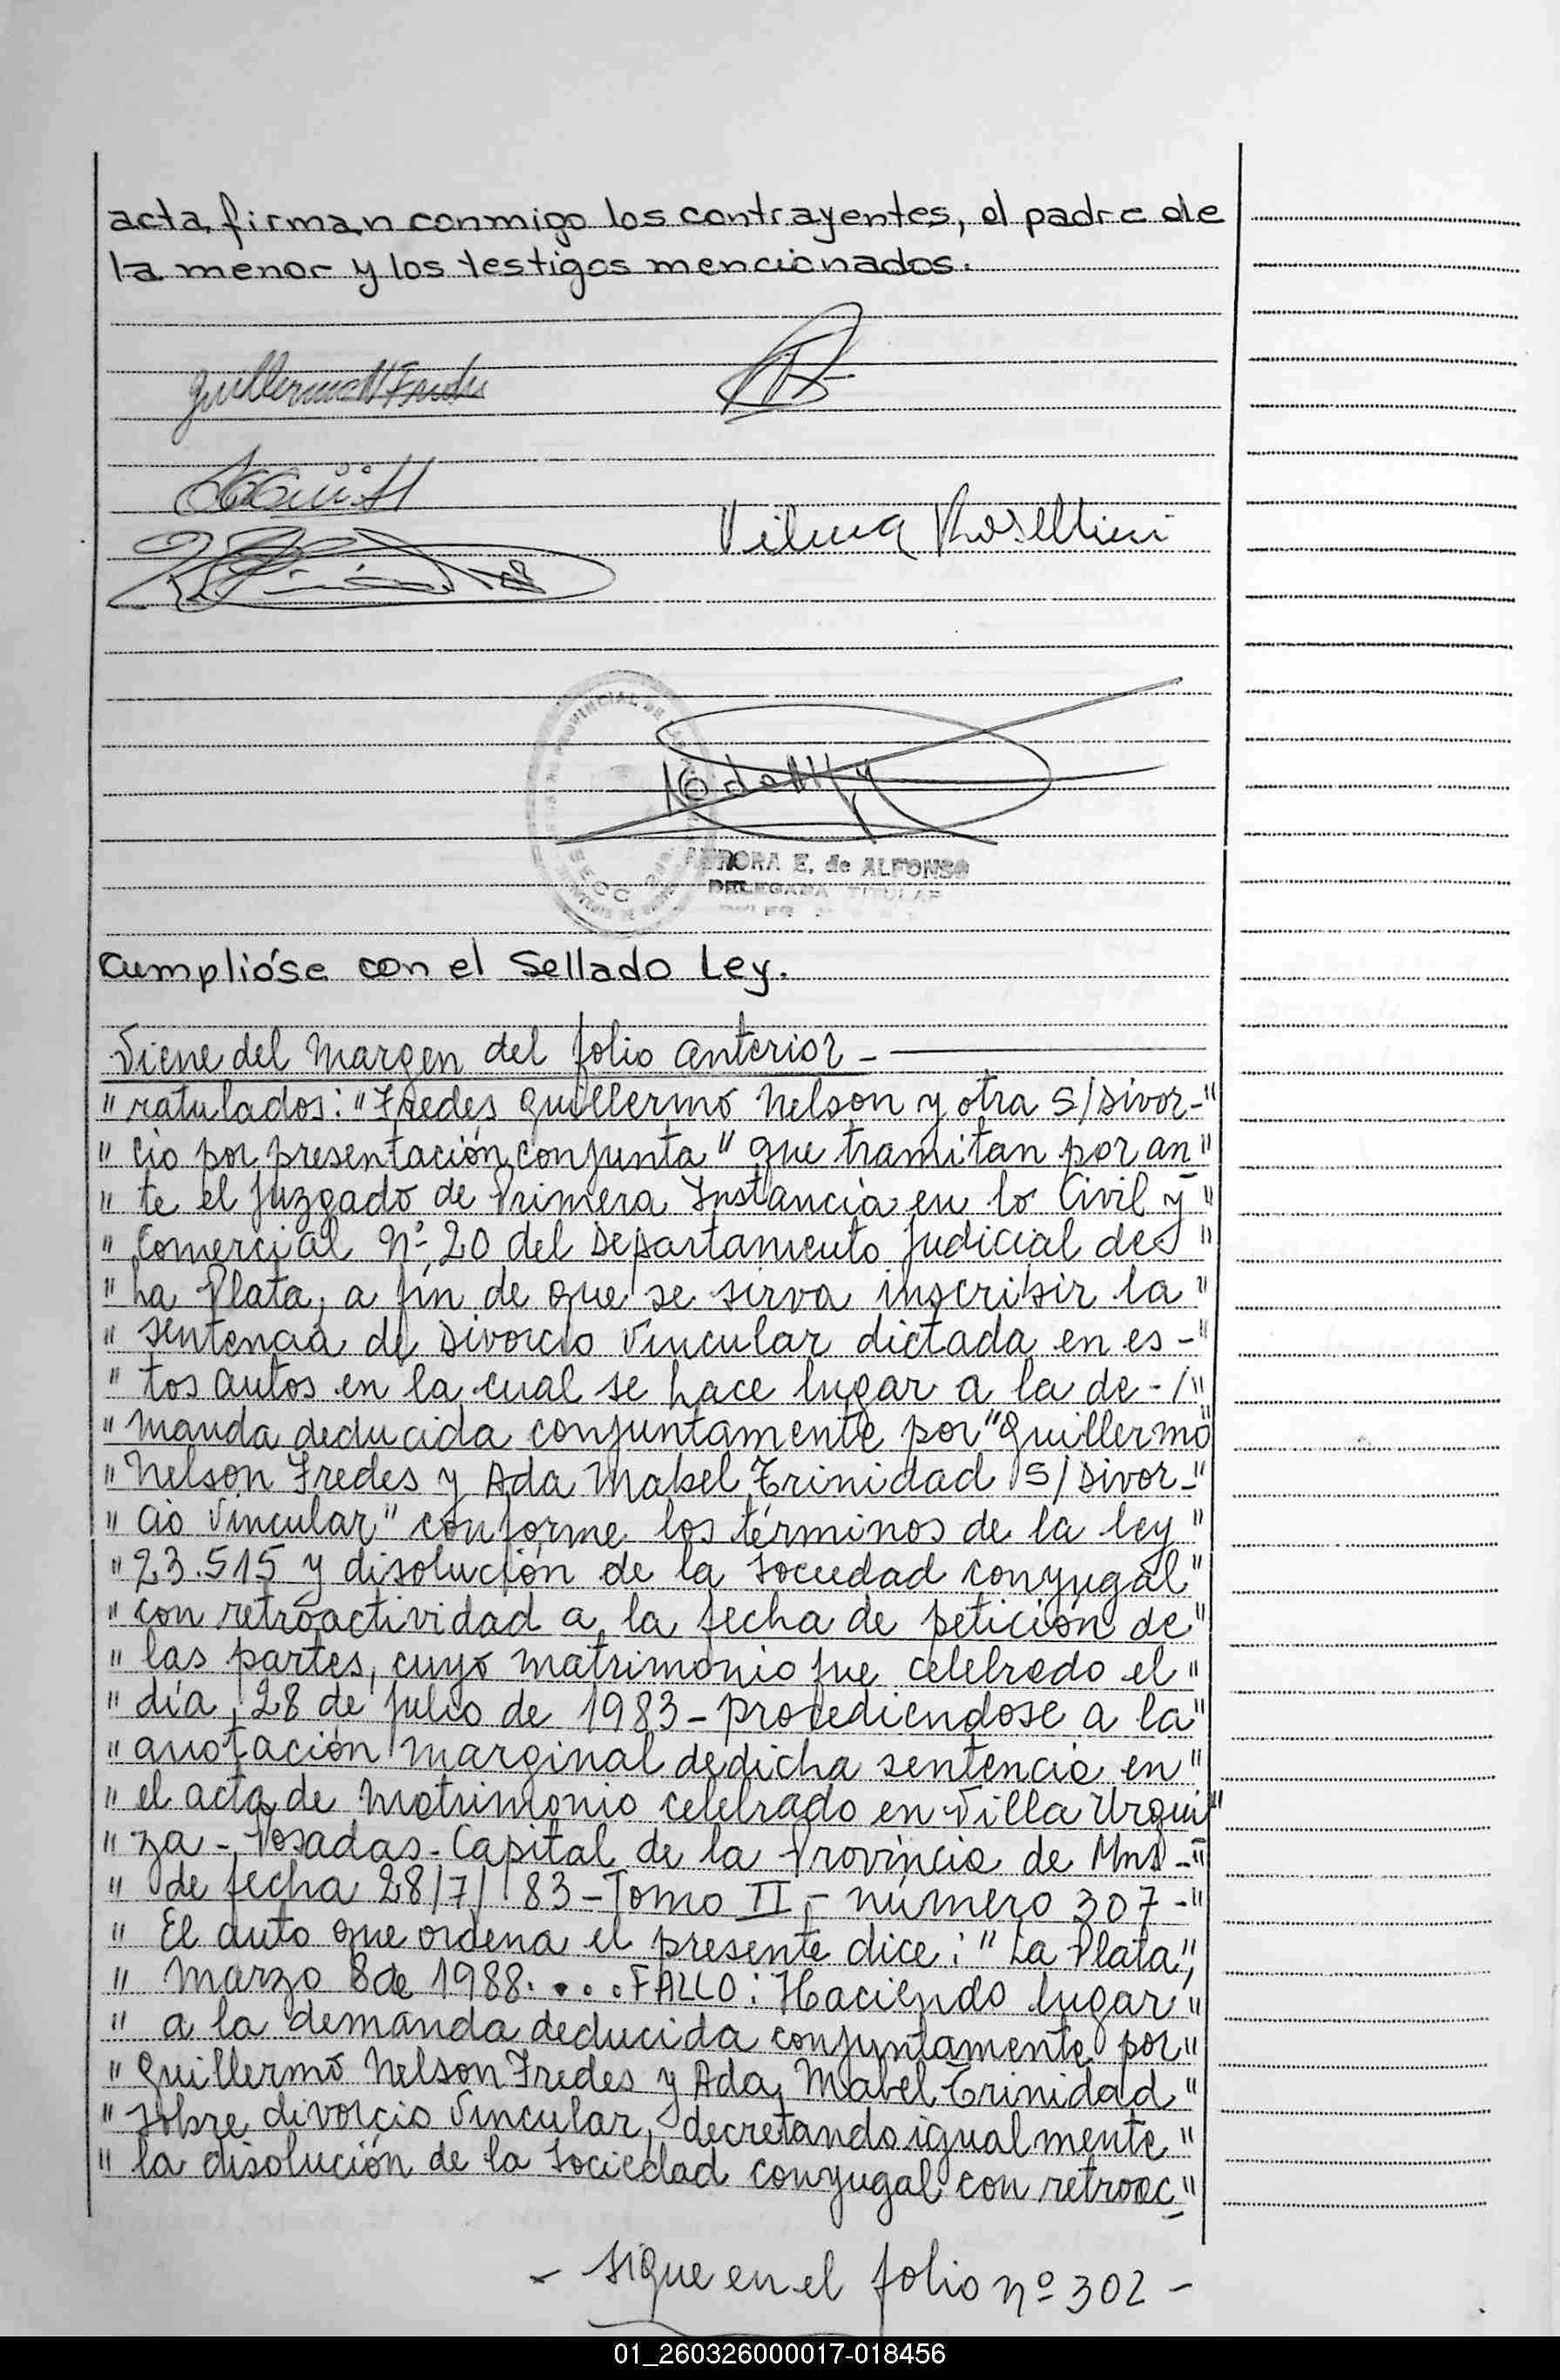 acta, firman conmigo los contrayentes, el padre de
la menor y los testigos mencionados.
Guillermo N Fredes
Vilma Rosellini
PROVINCIAL DE
AURORA E. de ALFONSO
DELEGADA TITULAR
Cumplióse con el Sellado Ley.
Viene del Margen del folio anterior -
" ratulados: "Fredes Guillermo Nelson y otra S/Divor-"
" cio por presentación conjunta" que tramitan por an"
" te el Juzgado de Primera Instancia en lo Civil y "
" Comercial Nº 20 del Departamento Judicial de "
" La Plata, a fin de que se sirva inscribir la "
" sentencia de Divorcio Vincular dictada en es-"
" tos autos en la cual se hace lugar a la de-/"
" manda deducida conjuntamente por "Guillermo"
" Nelson Fredes y Ada Mabel Trinidad S/Divor-"
" cio Vincular" conforme los términos de la ley "
" 23.515 y disolución de la sociedad conyugal"
" con retroactividad a la fecha de petición de"
" las partes, cuyo matrimonio fue celebrado el "
" día 28 de julio de 1983- procediendose a la"
" anotación marginal de dicha sentencia en "
" el acta de Matrimonio celebrado en Villa Urqui"
" za - Posadas - Capital de la Provincia de Mns -"
" de fecha 28/7/83 - Tomo II - número 307-"
" El auto que ordena el presente dice: "La Plata",
" Marzo 8 de 1988. . . . FALLO: Haciendo lugar "
" a la demanda deducida conjuntamente por "
" Guillermo Nelson Fredes y Ada Mabel Trinidad "
" sobre divorcio Vincular, decretando igualmente "
" la disolución de la sociedad conyugal con retroac"
- Sigue en el folio nº 302 -
01_260326000017-018456